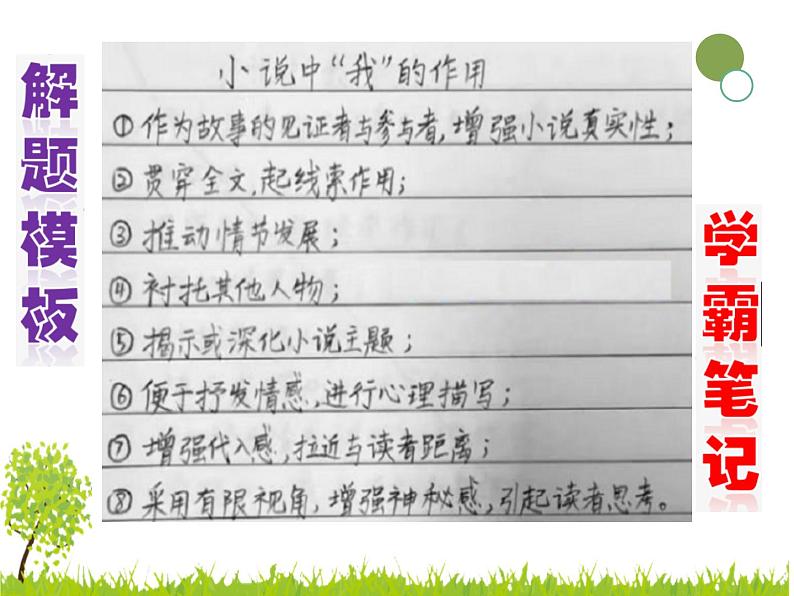 解题模板
小说中“我”的作用
①作为故事的见证者与参与者,增强小说真实性;
②贯穿全文,起线索作用;
③推动情节发展;
④衬托其他人物;
⑤揭示或深化小说主题;
⑥便于抒发情感,进行心理描写;
⑦增强代入感,拉近与读者距离;
⑧采用有限视角,增强神秘感,引起读者思考。
学霸笔记